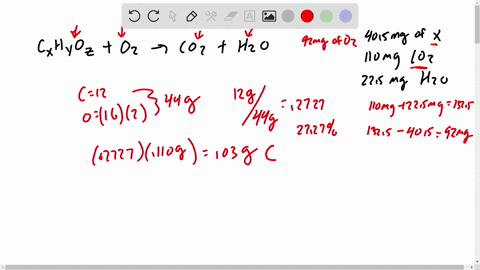 CxHyOz + O2 → CO2 + H2O
92mg of O2
40.5 mg of X
110mg CO2
22.5 mg H2O
C=12
O=(16)(2)
44g
12g/44g = .2727
27.27%
110mg+22.5mg=132.5
132.5-40.5=92mg
(.2727)(.110g) = .03g C